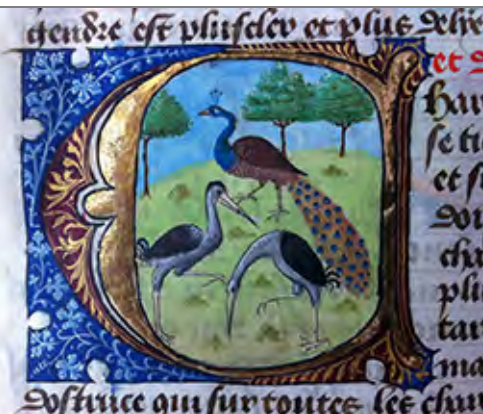 gendre est pluiseler et plus delye
et d
har
se ti
et si
doi
cha
plu
tan
ma
dostruce qui sur toutes les char